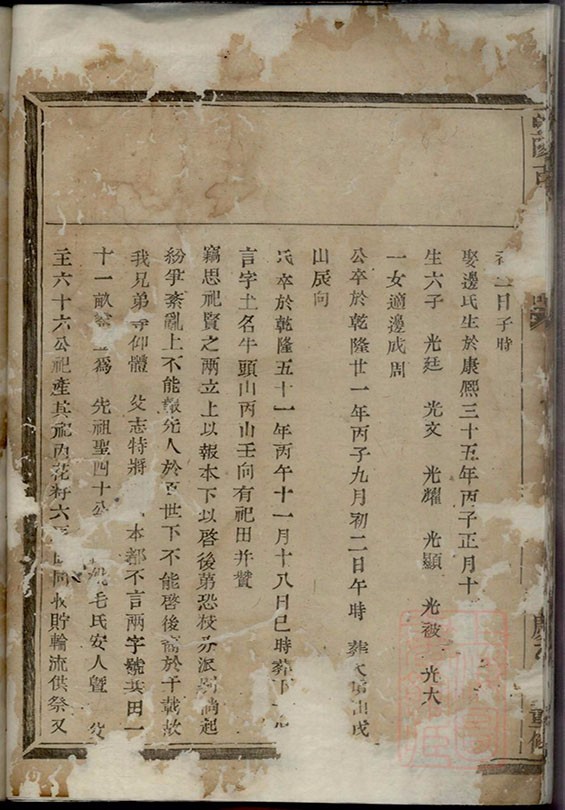 二日子時
娶邊氏生於康熙三十五年丙子正月十
生六子 光廷 光文 光耀 光顯 光被 光大
一女適邊成周
公卒於乾隆廿一年丙子九月初二日午時 葬 山戌
山辰向
氏卒於乾隆五十一年丙午十一月十八日巳時葬下
言字土名牛頭山丙山壬向有祀田并贊
竊思祀賢之兩立上以報本下以啓後第恐枝分派別倘起
紛爭紊亂上不能報先人於百世下不能啓後 於千載故
我兄弟等仰體 父志特將 本都不言兩字號共田一
十一畝 為 先祖聖四十公 毛氏安人暨 父
王六十六公祀產其祀內花籽六 回收貯輪流供祭又
重修